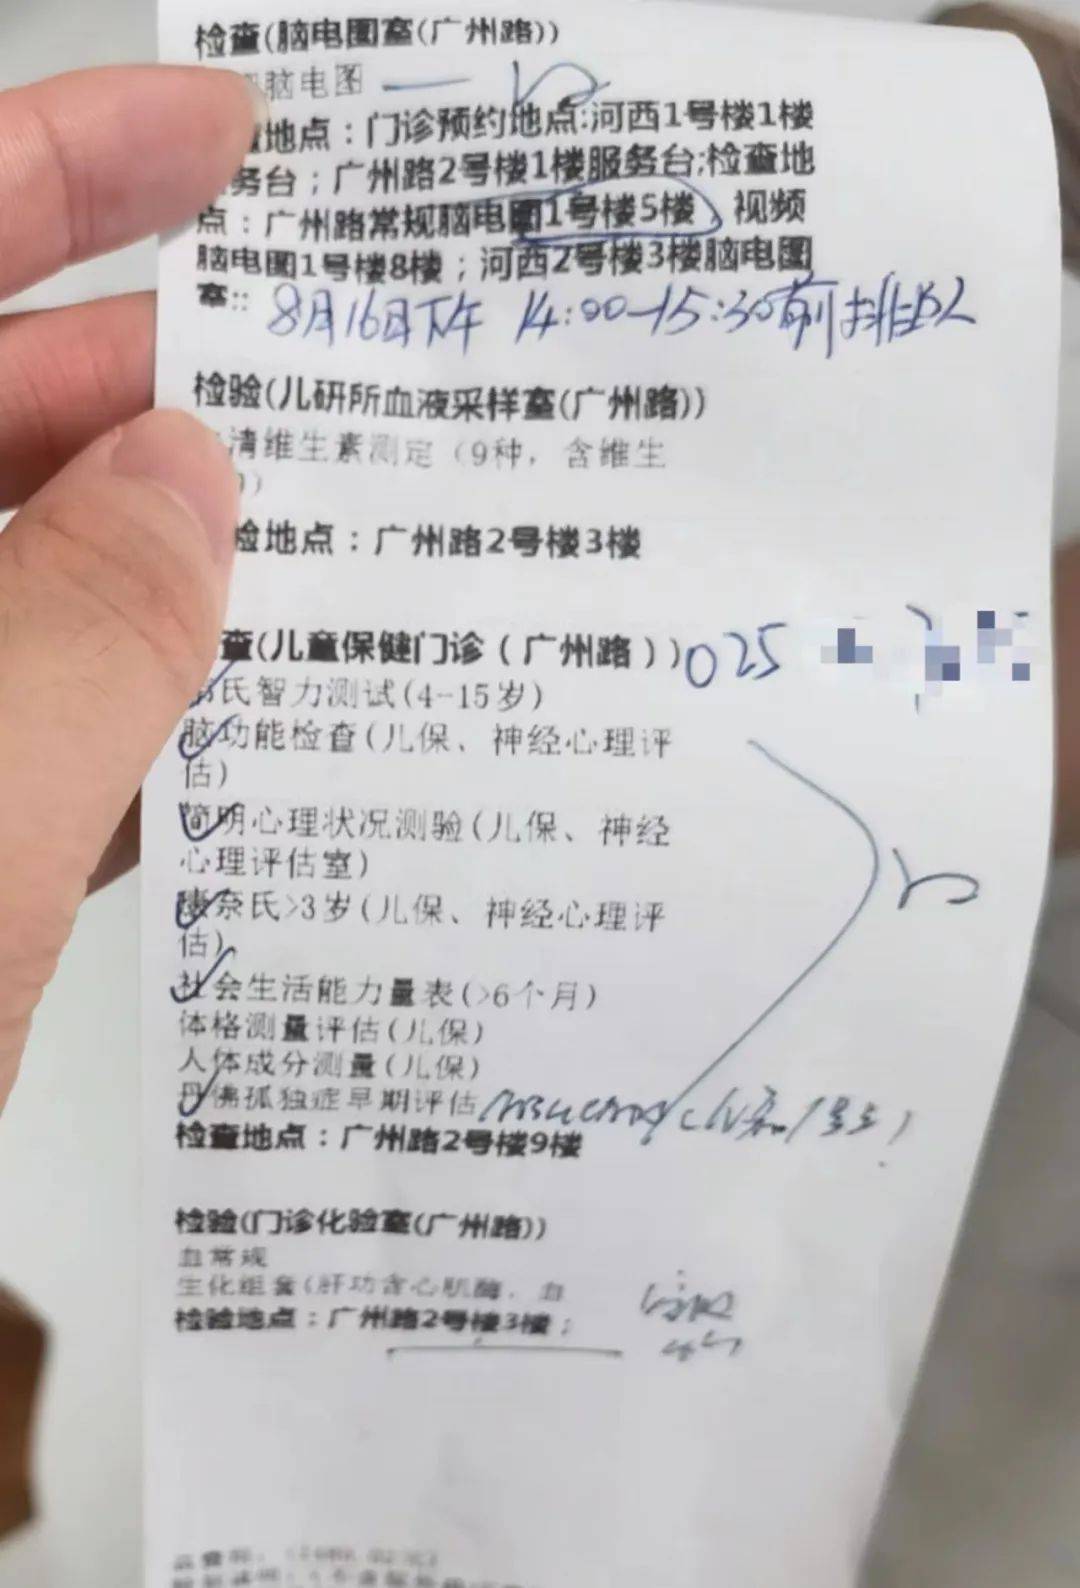 检查(脑电图室(广州路))
脑电图
地点：门诊预约地点:河西1号楼1楼
务台；广州路2号楼1楼服务台;检查地
点：广州路常规脑电图1号楼5楼，视频
脑电图1号楼8楼；河西2号楼3楼脑电图
室::
8月16日下午 14:00-15:30前排队
检验(儿研所血液采样室(广州路))
清维生素测定（9种，含维生
)
检地点：广州路2号楼3楼
查(儿童保健门诊（广州路）)
025
氏智力测试(4-15岁)
脑功能检查(儿保、神经心理评
估)
简明心理状况测验(儿保、神经
心理评估室)
康奈氏>3岁(儿保、神经心理评
估)
社会生活能力量表(>6个月)
体格测量评估(儿保)
人体成分测量(儿保)
丹佛孤独症早期评估
检查地点：广州路2号楼9楼
检验(门诊化验室(广州路))
血常规
生化组套(肝功含心肌酶，血
检验地点：广州路2号楼3楼；